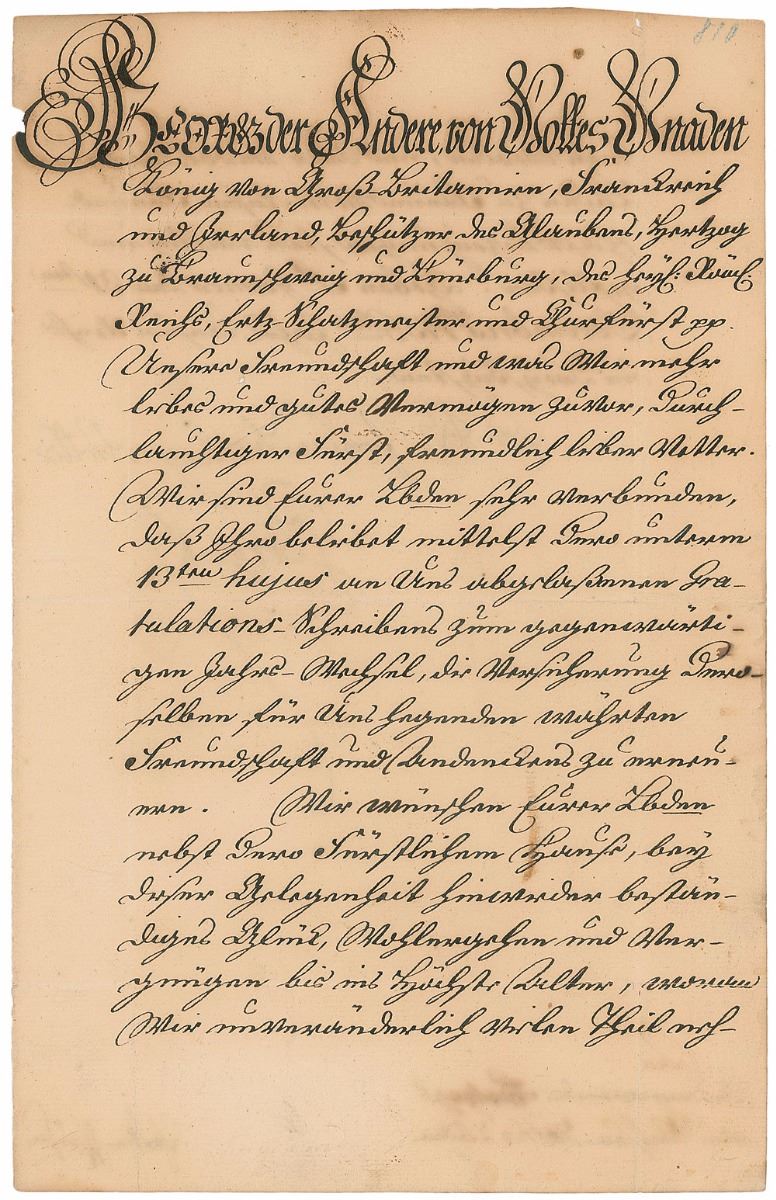 810
GEORG der Andere, von Gottes Gnaden
König von Groß-Britannien, Franckreich
und Irrland, Beschützer des Glaubens, Hertzog
zu Braunschweig und Lüneburg, des heyl: Röml.
Reichs, Ertz-Schatzmeister und Churfürst pp.
Unsere Freundschaft und was Wir mehr
liebes und gutes Vermögen zuvor, Durch-
lauchtiger Fürst, freundlich lieber Vetter.
Wir sind Eurer Lbden sehr verbunden,
daß Ihro beliebet mittelst Dero unterm
13ten hujus an Uns abgelaßenen Gra-
tulations-Schreibens zum gegenwärti-
gen Jahrs-Wechsel, die Versicherung Dero-
selben für Uns hegenden währten
Freundschaft und Andenckens zu erneu-
ern. Wir wünschen Eurer Lbden
nebst Dero Fürstlichem Hause, bey
dieser Gelegenheit hinwieder bestän-
diges Glück, Wohlergehen und Ver-
gnügen bis ins höchste Alter, woran
Wir unveränderlich vielen Theil neh-